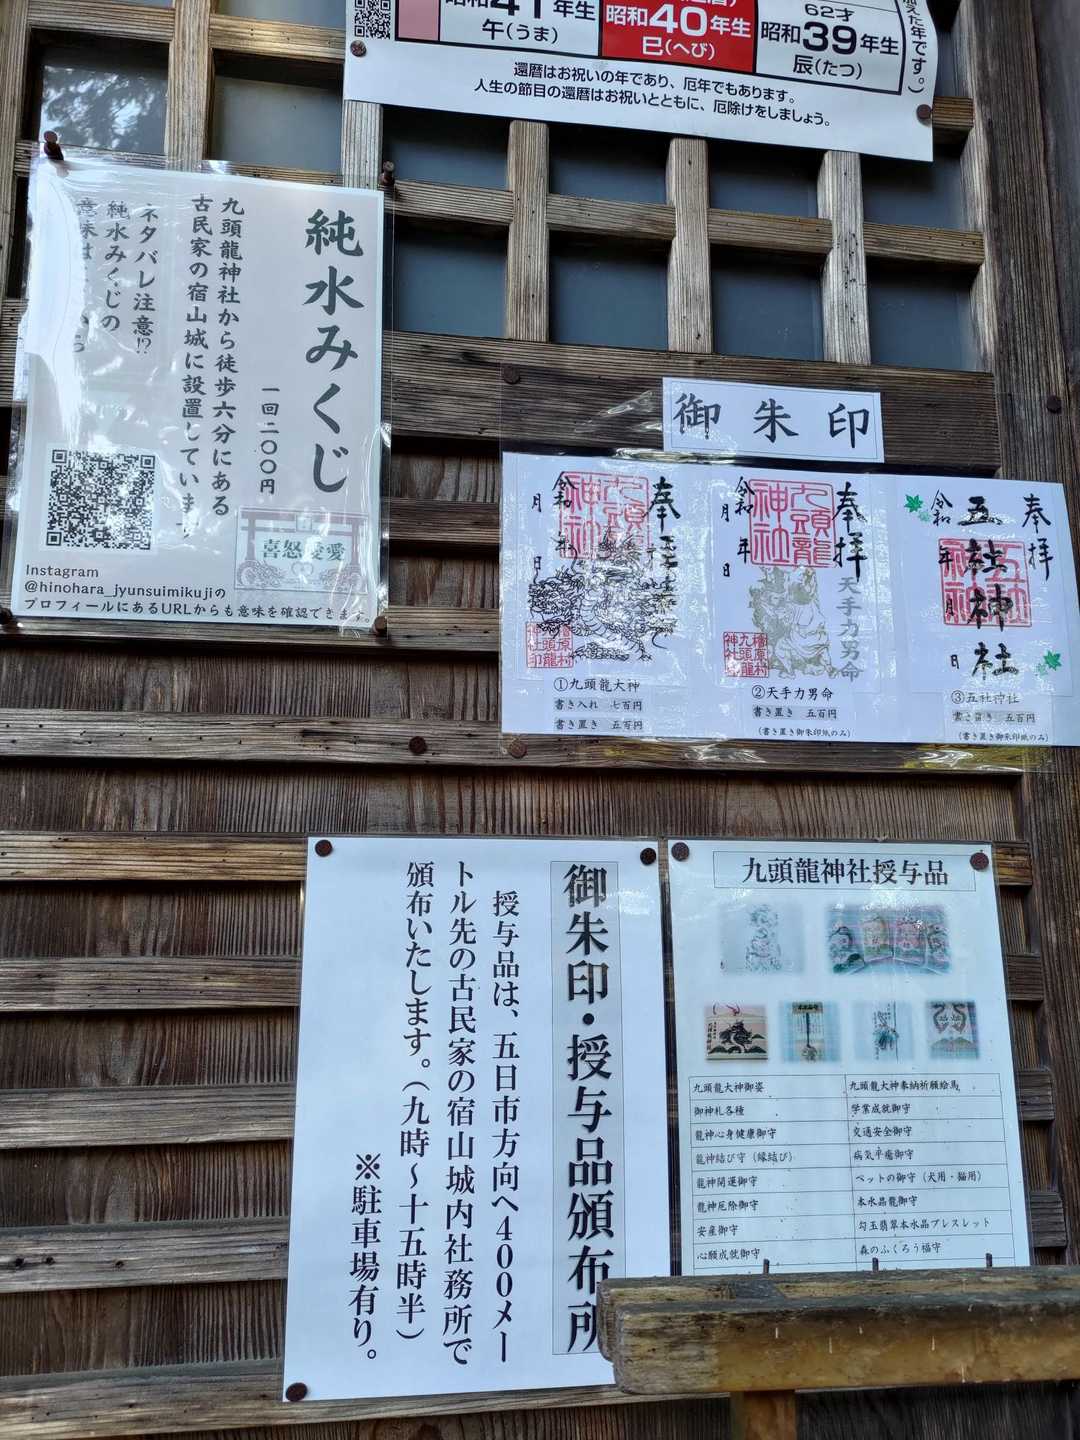 昭和41年生
午(うま)
昭和40年生
巳(へび)
62才
昭和39年生
辰(たつ)
えた年です。)
還暦はお祝いの年であり、厄年でもあります。
人生の節目の還暦はお祝いとともに、厄除けをしましょう。
純水みくじ
一回二〇〇円
九頭龍神社から徒歩六分にある
古民家の宿山城に設置しています
ネタバレ注意!?
純水みくじの
意味は
喜怒哀愛
Instagram
@hinohara_jyunsuimikujiの
プロフィールにあるURLからも意味を確認できます
御朱印
奉拝
九頭龍
神社
令和 年
月 日
檜原村
九頭龍
神社印
①九頭龍大神
書き入れ 七百円
書き置き 五百円
奉拝
九頭龍
神社
天手力男命
令和 年
月 日
檜原村
九頭龍
神社印
②天手力男命
書き置き 五百円
(書き置き御朱印紙のみ)
奉拝
五社神社
五社
神社
令和 年
月 日
③五社神社
書き置き 五百円
(書き置き御朱印紙のみ)
御朱印・授与品頒布所
授与品は、五日市方向へ400メー
トル先の古民家の宿山城内社務所で
頒布いたします。(九時～十五時半)
※駐車場有り。
九頭龍神社授与品
九頭龍大神御姿
九頭龍大神奉納祈願絵馬
御神札各種
学業成就御守
龍神心身健康御守
交通安全御守
龍神結び守(縁結び)
病気平癒御守
龍神開運御守
ペットの御守(犬用・猫用)
龍神厄除御守
本水晶龍御守
安産御守
勾玉翡翠本水晶ブレスレット
心願成就御守
森のふくろう福守